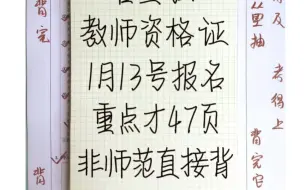 教师资格证
1月13号报名
重点才47页
非师范直接背
背完
背
考得上
背完它